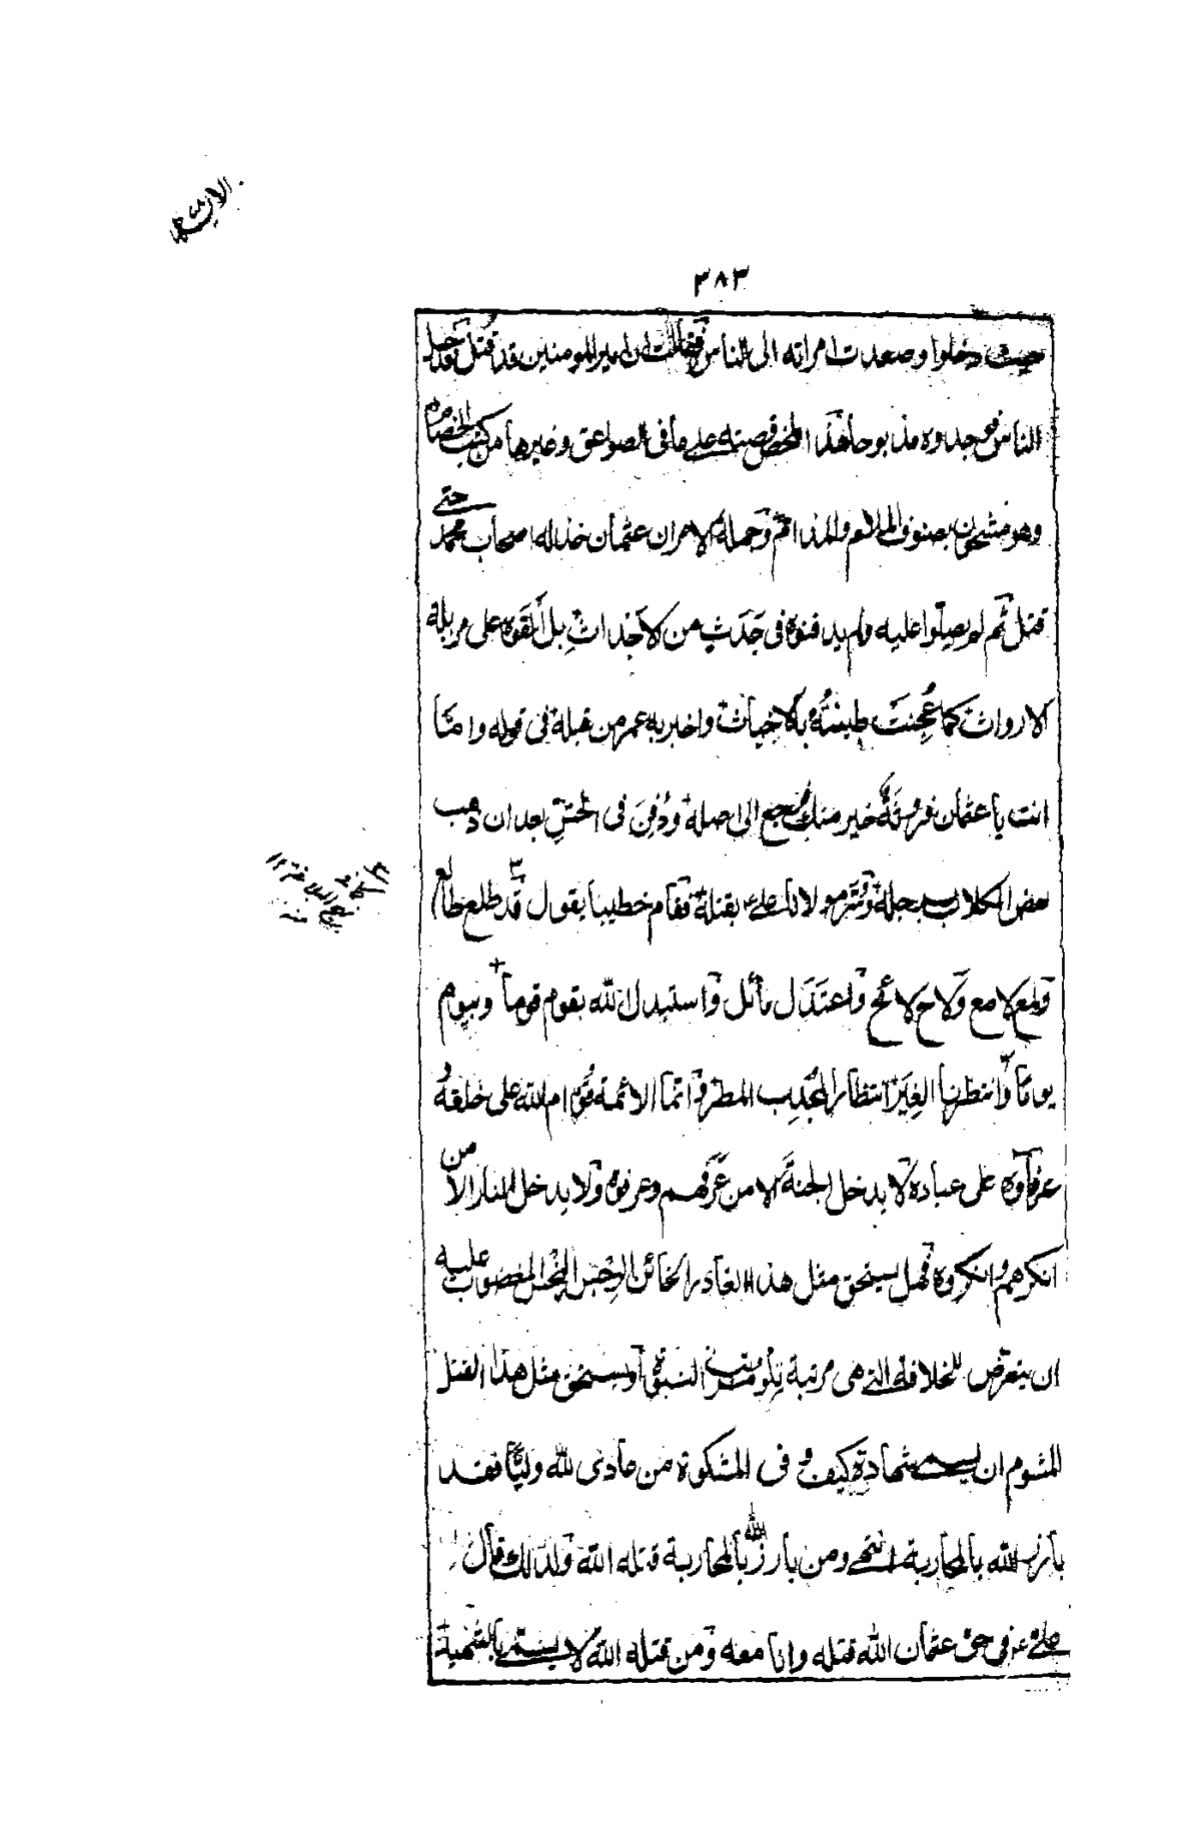 ٣٨٣
حيث دخلوا وصعدت امراته الى الناس فقالت ان امير المومنين قد قتل فدخل
الناس فوجدوه مذبوحا هذا ملخص قصته على ما في الصواعق وغيرها من كتب الخصام
وهو مشحون بصنوف الملاوم والمذام وجملة الامر ان عثمان خذله اصحاب محمد حتى
قتل ثم لم يصلوا عليه ولم يدفنوه فى جَدَث من الاجداث بل القوه على مزبلة
الارواث كما عُجِنَت طينتُه بالاخباث واخبر به عمر من قبله فى قوله واما
انت يا عثمان فروثة خير منك فرجع الى اصله ودُفِنَ فى الحش بعد ان ذهب
بعض الكلاب برجله وسر مولانا على بقتله فقام خطيبا يقول قد طلع طالع
ولمع لامع ولاح لائح واعتدل مائل واستبدل الله بقوم قوما وبيوم
يوما وانتظرنا الغِيَر انتظار المجدب المطر وانما الائمة قوام الله على خلقه و
عرفاؤه على عباده لا يدخل الجنة الا من عرفهم وعرفوه ولا يدخل النار الا من
انكرهم وانكروه فهل يستحق مثل هذا الغادر الخائن الرجس النجس المغضوب عليه
ان يتعرض للخلافة التى هى مرتبة تلو مرتبة النبوة او يستحق مثل هذا القتل
المشوم ان يسمى شهادة كيف و فى المشكوة من عادى لله وليا فقد
بارز الله بالمحاربة انتهى ومن بارز الله بالمحاربة قتله الله ولذلك قال
على فى حق عثمان الله قتله وانا معه ومن قتله الله لا يسمى بالشهيد